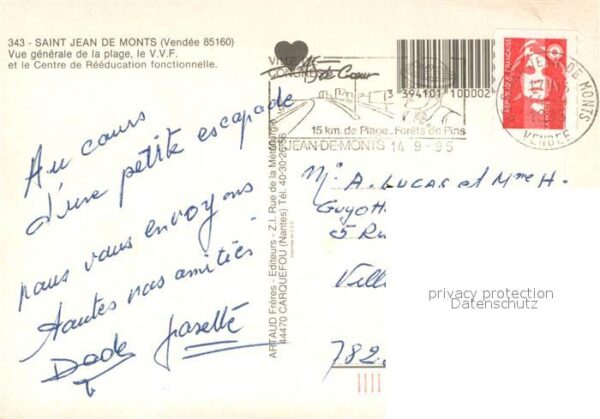 343 - SAINT JEAN DE MONTS (Vendée 85160)
Vue générale de la plage, le V.V.F.
et le Centre de Rééducation fonctionnelle.
Au cours
d'une petite escapade
nous vous envoyons
toutes nos amitiés
Dado Josette
ARTAUD Frères - Editeurs - Z.I. Rue de la Métallurgie
44470 CARQUEFOU (Nantes) Tél. 40-30-25-56
de Cœur
3 394101 100002
15 km. de Plage - Forêts de Pins
JEAN-DE-MONTS 14 9-95
REPUBLIQUE FRANÇAISE
DE MONTS
VENDEE
Mr A. LUCAS et Mme H.
Guyott
5 Ru
Ville
782
privacy protection
Datenschutz